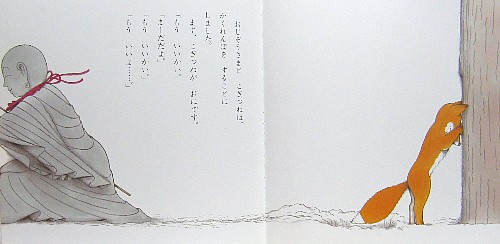 おじぞうさまと　こぎつねは、
かくれんぼを　することに
しました。
まず、こぎつねが　おにです。
「もう　いいかい」
「まーだだよ」
「もう　いいかい」
「もう　いいよ……」